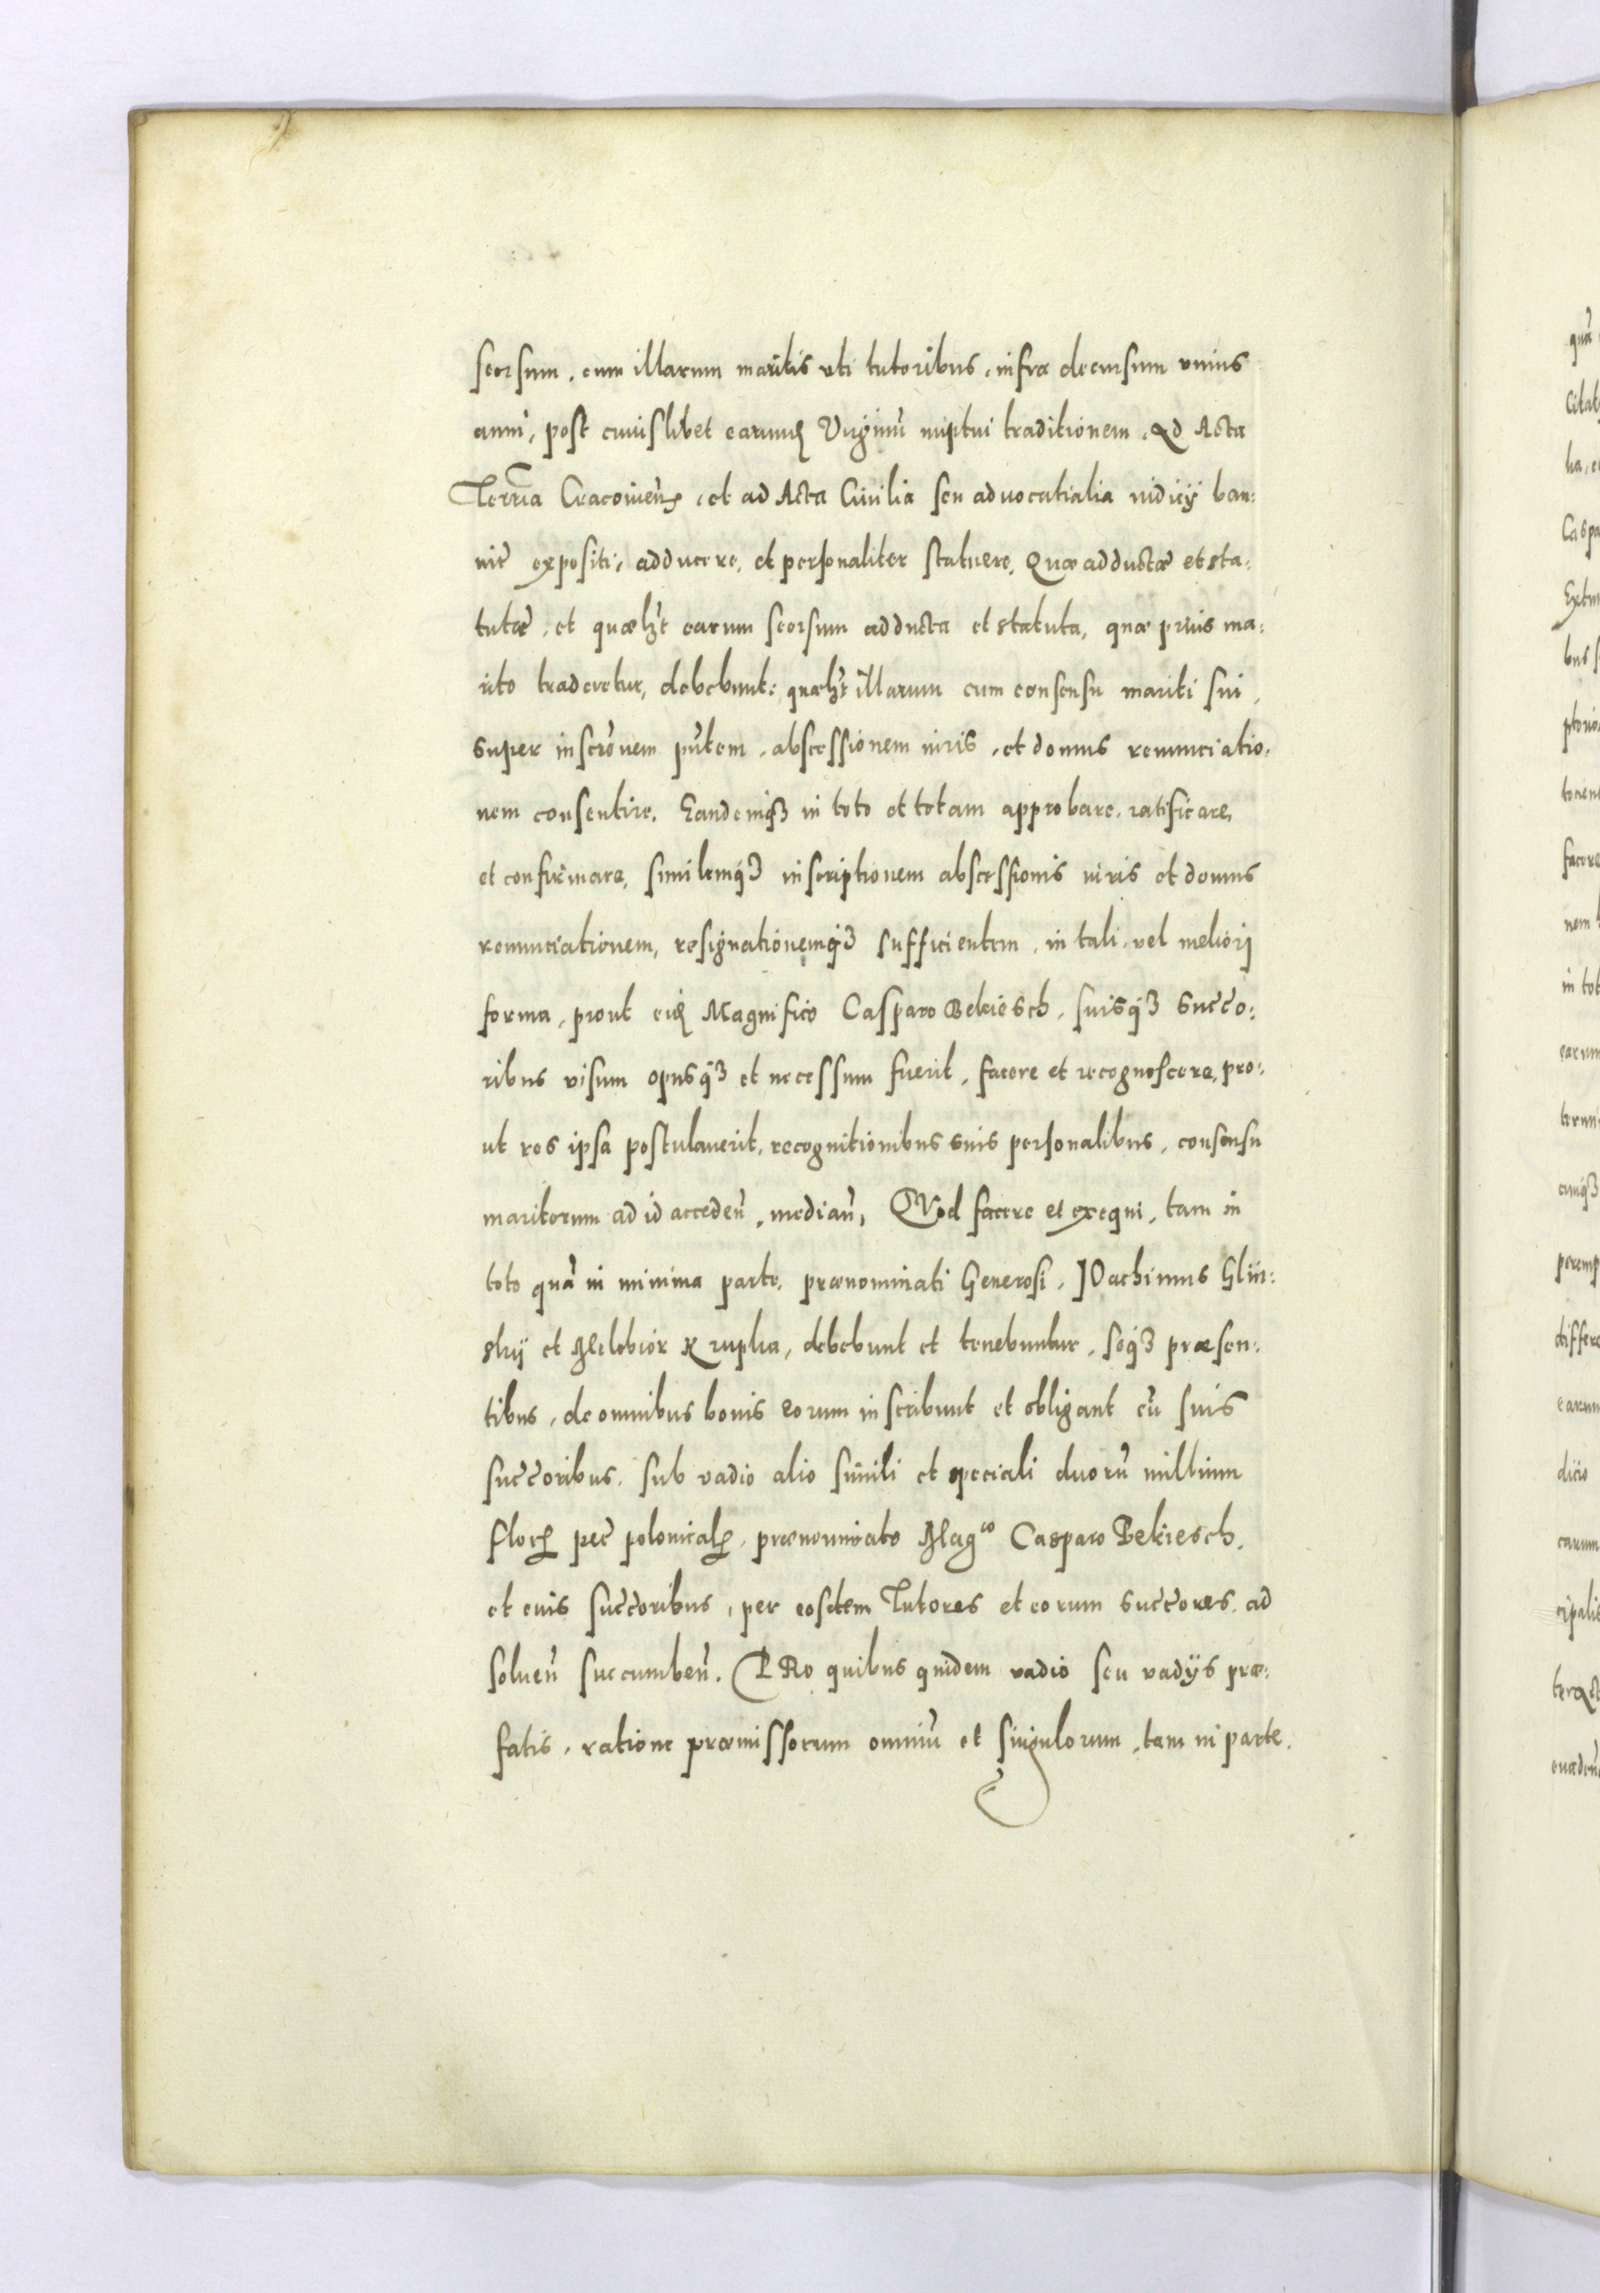 seorsum, cum illarum maritis uti tutoribus, infra decursum unius
anni, post cuiuslibet earund Virginũ nuptui traditionem, Ad Acta
Terrĩa Cracovieñ, et ad Acta Civilia seu advocatialia iudicÿ ban:
nit̃ expositi, adducere, et personaliter statuere, Quæ adductæ et sta:
tutæ, et quælẽt earum seorsum adducta et statuta, quæ prius ma:
rito traderetur, debebunt: quælẽt illarum cum consensu mariti sui,
super inscrõnem pñtem, abscessionem iuris, et domus renunciatio:
nem consentire, Eandemq3 in toto et totam approbare, ratificare,
et confirmare, similemq3 inscriptionem abscessionis iuris et domus
renunciationem, resignationemq3 sufficientem, in tali, vel meliori
forma, prout eid Magnifico Casparo Bekiesch, suisq3 succ̃o:
ribus visum opusq3 et necessum fuerit, facere et recognoscere, pro:
ut res ipsa postulaverit, recognitionibus suis personalibus, consensu
maritorum ad id accedeñ, mediañ, QVod facere et exequi, tam in
toto quã in minima parte, prænominati Generosi, JOachimus Glin:
skÿ et Melchior Krupka, debebunt et tenebuntur, seq3 præsen:
tibus, de omnibus bonis eorum inscribunt et obligant cũ suis
succ̃oribus, sub vadio alio simili et speciali duorũ millium
floreñ pec̃ polonical, prænominato Mag^co Casparo Bekiesch,
et euis succ̃oribus, per eosdem Tutores et eorum succ̃ores, ad
solueñ succumbeñ. PRo quibus quidem vadio seu vadÿs præ:
fatis, ratione præmissorum omniũ et singulorum, tam in parte,